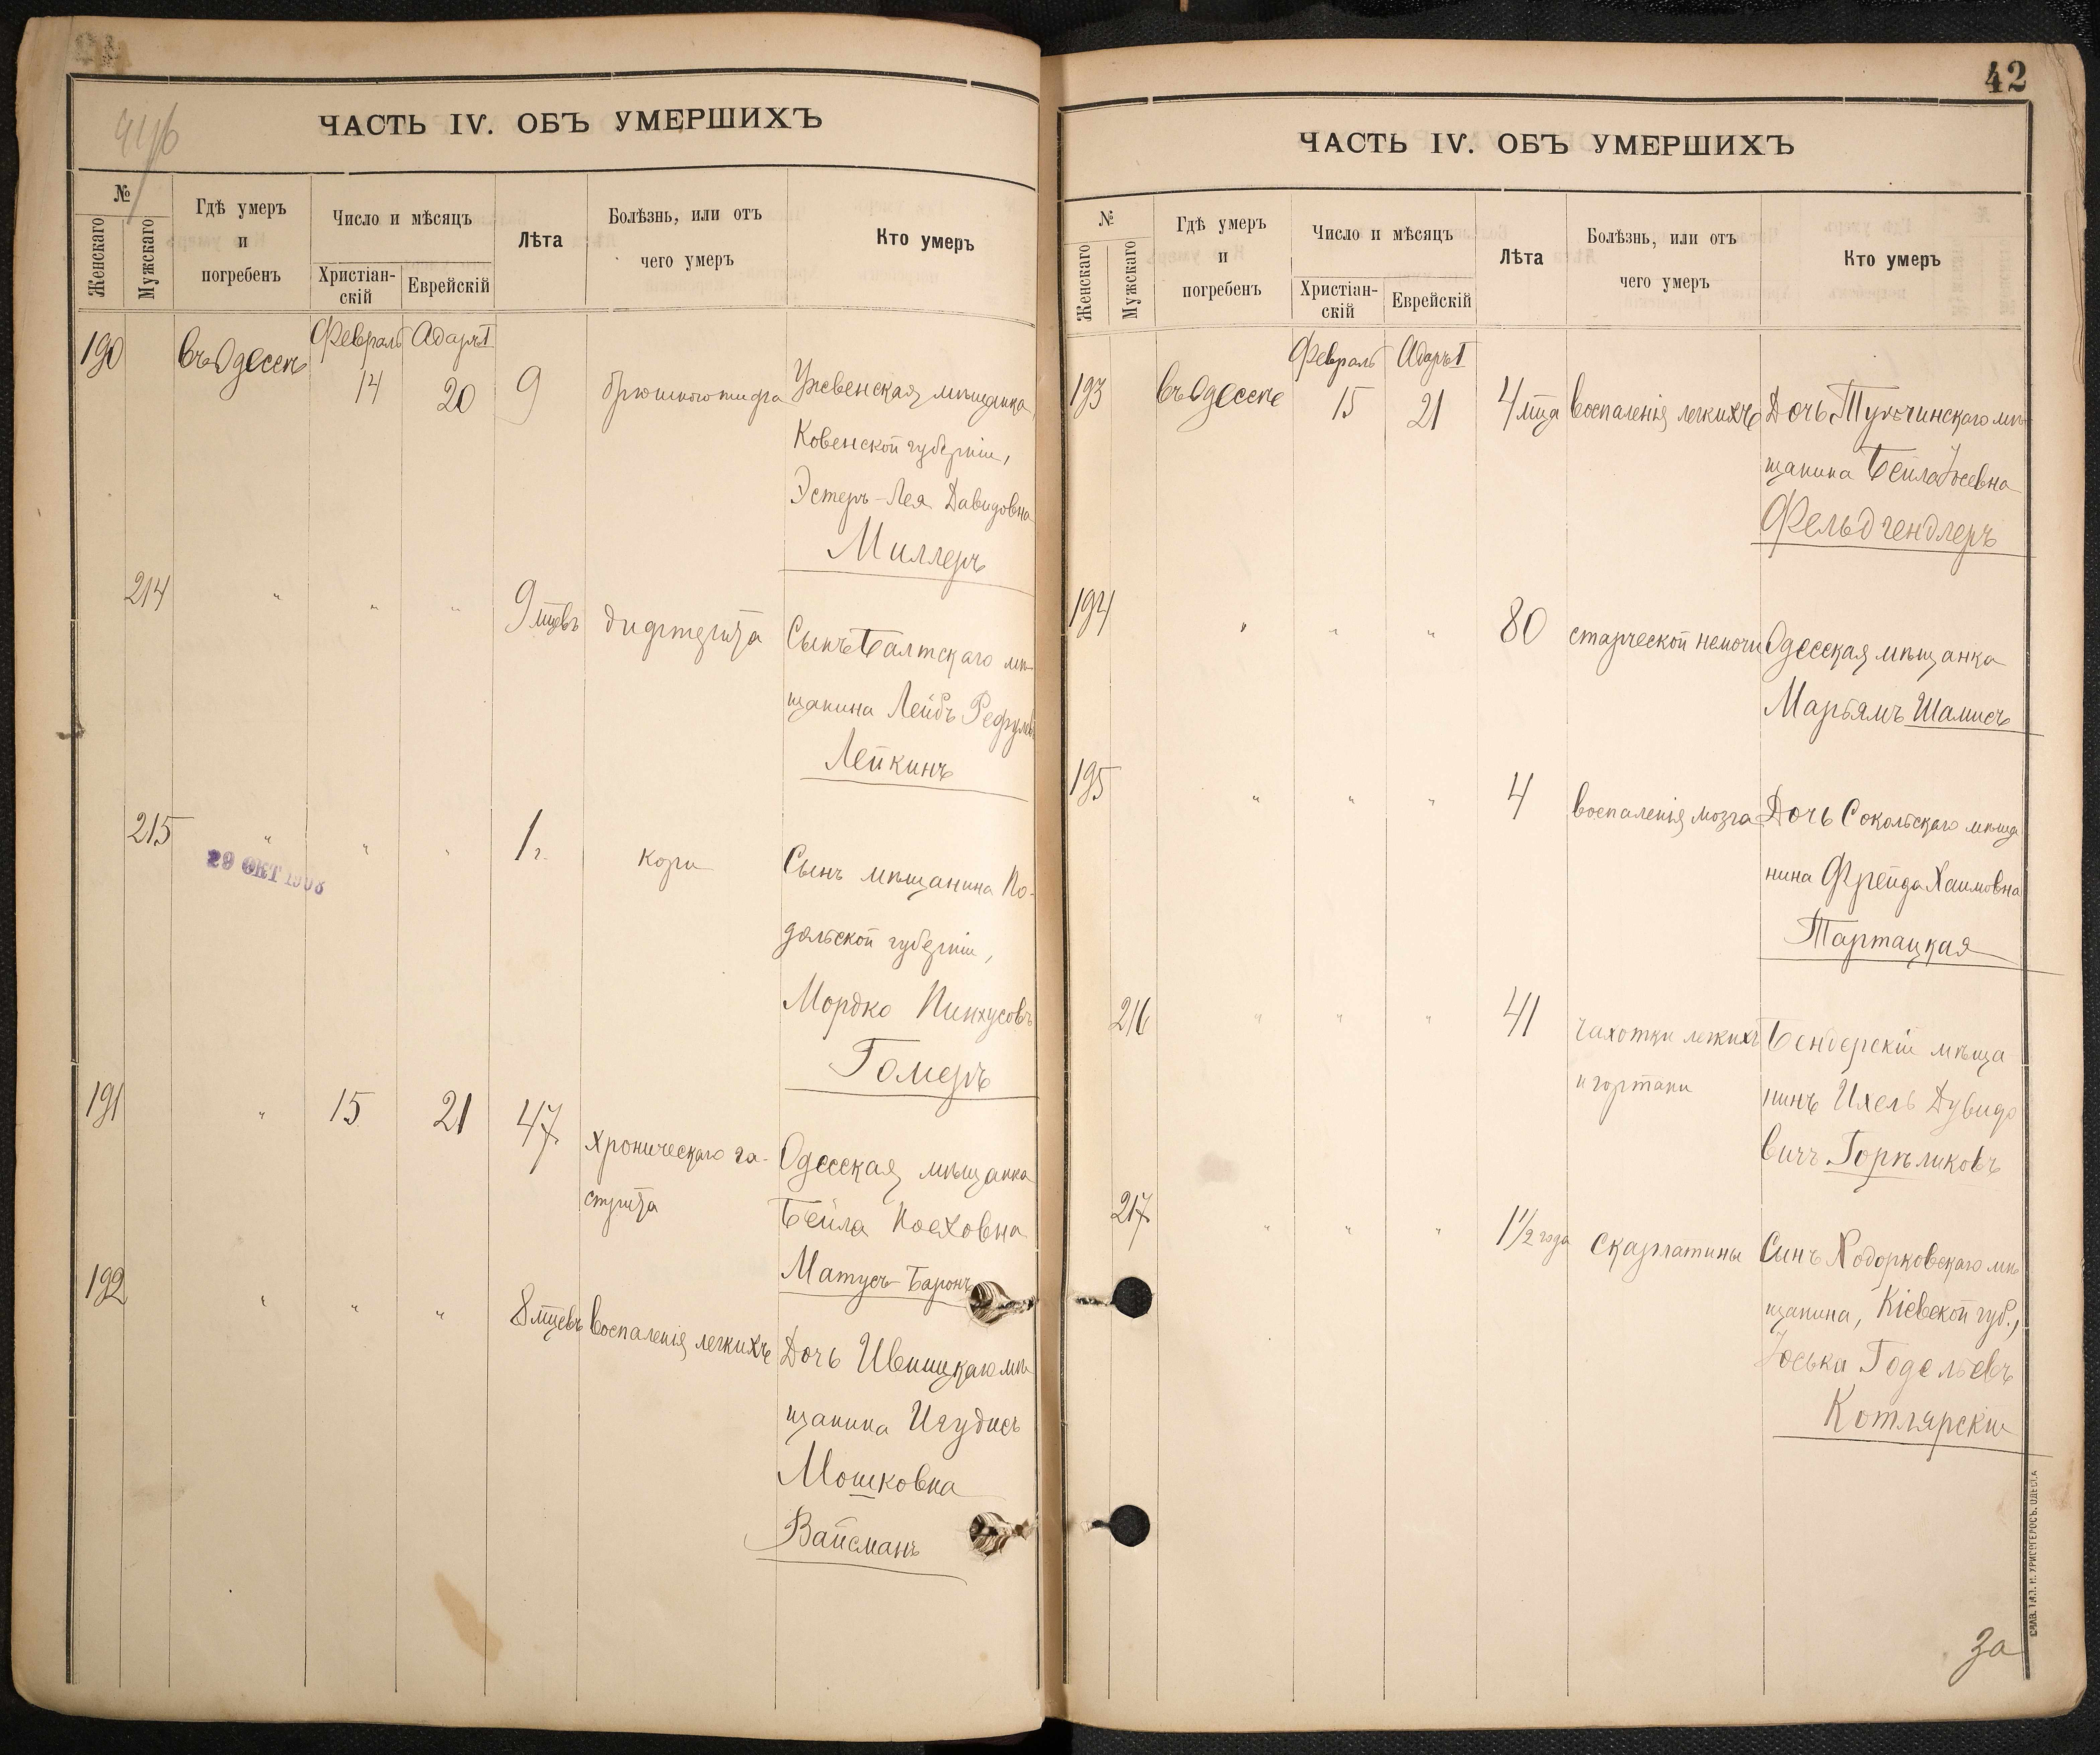 42
ЧАСТЬ IV. ОБЪ УМЕРШИХЪ
№
Женскаго
Мужскаго
Гдѣ умеръ
и
погребенъ
Число и мѣсяцъ
Христіан-
скій
Еврейскій
Лѣта
Болѣзнь, или отъ
чего умеръ
Кто умеръ
190
въ Одессѣ
Февраль
14
Адаръ I
20
9
брюшного тифа
мѣщанка
Ковенской губерніи,
Эстеръ-Лея Давидовна
Миллеръ
214
" " "
9 мцевъ
дифтерита
Сынъ Балтскаго мѣ-
щанина Лейбъ
Лейкинъ
215
" " "
29 ОКТ 1908
1 г.
кори
Сынъ мѣщанина По-
дольской губерніи,
Мордко Пинхусовъ
Гомеръ
191
"
15
21
47
хроническаго га-
стрита
Одесская мѣщанка
Бейла
Матусъ-Баронъ
192
" " "
8 мцевъ
воспаленія легкихъ
Дочь Ивницкаго мѣ
щанина Игудисъ
Мошковна
Вайсманъ
42
ЧАСТЬ IV. ОБЪ УМЕРШИХЪ
№
Женскаго
Мужскаго
Гдѣ умеръ
и
погребенъ
Число и мѣсяцъ
Христіан-
скій
Еврейскій
Лѣта
Болѣзнь, или отъ
чего умеръ
Кто умеръ
193
въ Одессѣ
Февраль
15
Адаръ I
21
4 мца
воспаленія легкихъ
Дочь Тульчинскаго мѣ-
щанина Бейла Іосевна
Фельдгендлеръ
194
" " "
80
старческой немочи
Одесская мѣщанка
Марьямъ Шамисъ
195
" " "
4
воспаленія мозга
Дочь Сокольскаго мѣща
нина Фрейда Хаимовна
Тартацкая
216
" " "
41
чахотки легкихъ
и гортани
Бендерскій мѣща
нинъ Ихель Дувидо
вичъ Горѣликовъ
217
" " "
1 1/2 года
скарлатины
Сынъ Ходорковскаго мѣ
щанина, Кіевской губ.,
Іоська Годельевъ
Котлярскій
За